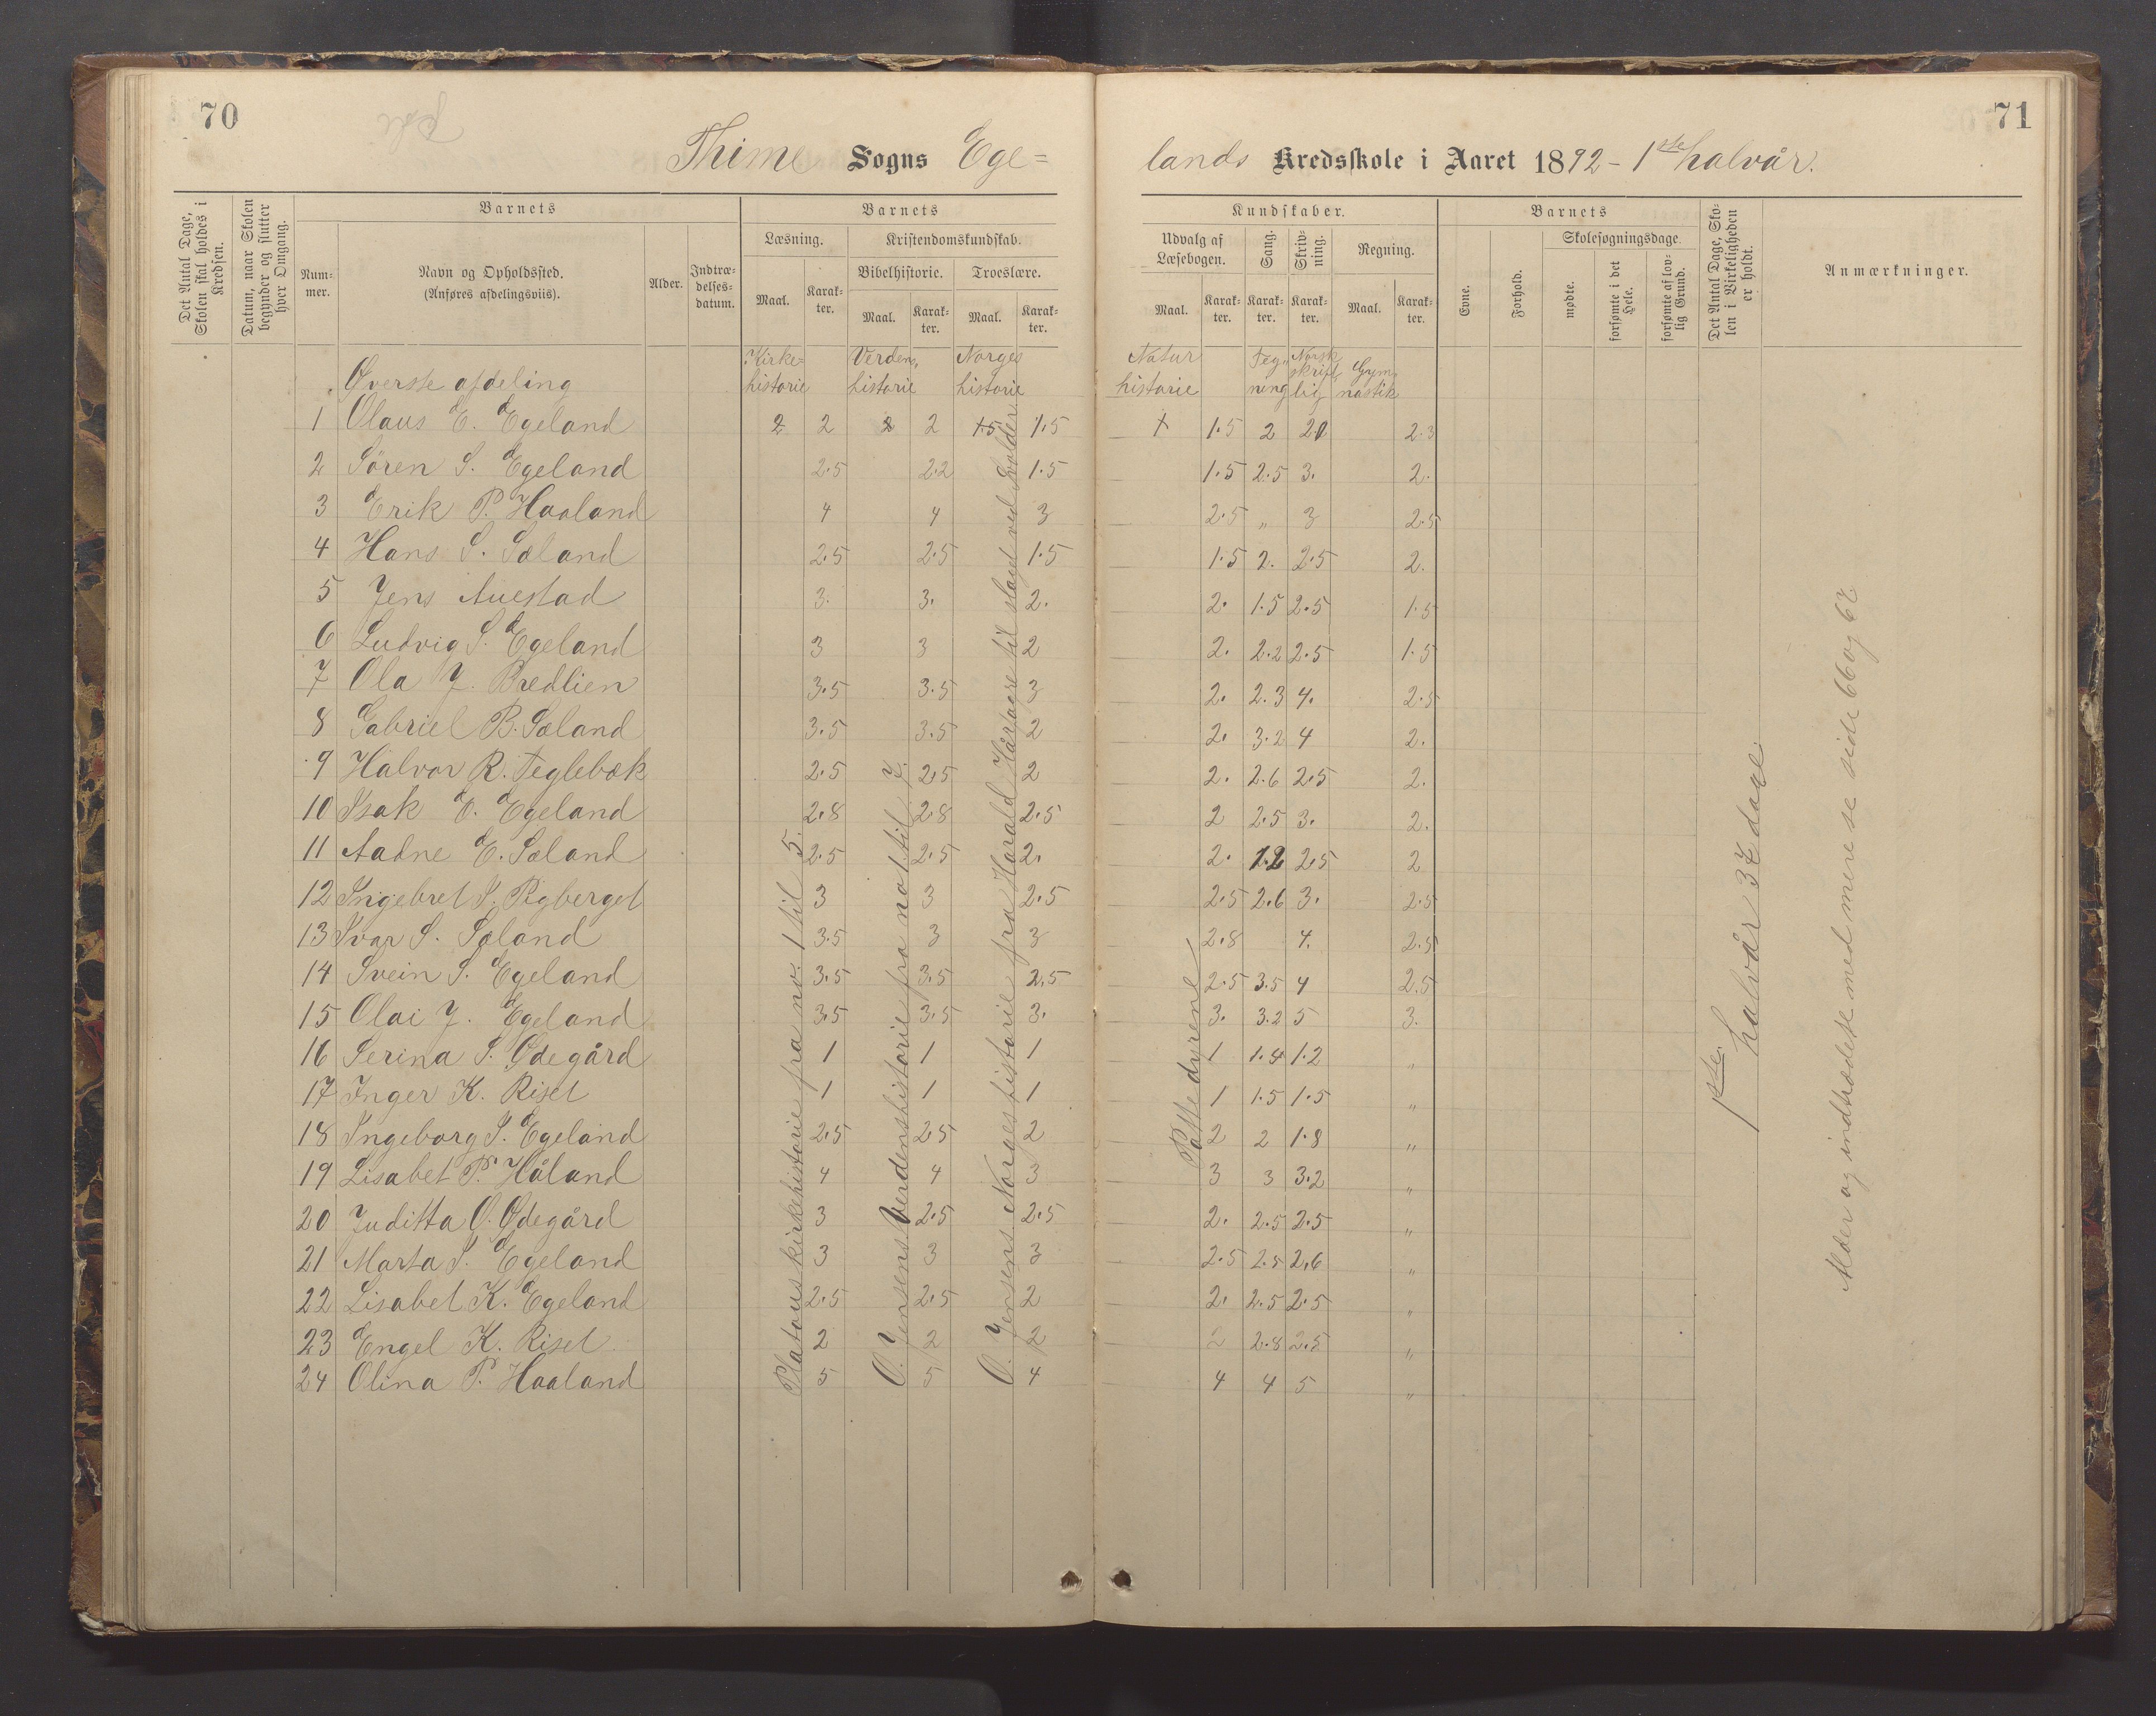 70
Thime Sogns Ege=
Det Antal Dage, Skolen skal holdes i Kredsen.
Datum, naar Skolen begynder og slutter hver Omgang.
Barnets
Num-mer.
Navn og Opholdssted.
(Anføres afdelingsviis).
Alder.
Indtræ-delses-datum.
Barnets
Læsning.
Kristendomskundskab.
Bibelhistorie.
Troeslære.
Maal. Karak-ter. Maal. Karak-ter. Maal. Karak-ter.
Kirke= Verdens, Norges
Øverste afdeling historie historie historie
1 Olaus E. Egeland 2 2 2 2 1.5 1.5
2 Sören S. Egeland 2.5 2.2 1.5
3 Erik P. Haaland 4 4 3
4 Hans S. Sæland 2.5 2.5 1.5
5 Jens Auestad 3. 3. 2.
6 Ludvig S. Egeland 3 3 2
7 Ola J. Bredlien 3.5 3.5 3
8 Gabriel B. Sæland 3.5 3.5 2
9 Halvor R. Teglebæk 2.5 2.5 2
10 Isak O. Egeland 2.8 2.8 2.5
11 Aadne E. Sæland 2.5 2.5 2.
12 Ingebret S. Rygberget 3 3 2.5
13 Ivar S. Sæland 3.5 3 3
14 Svein S. Egeland 3.5 3.5 2.5
15 Olai J. Egeland 3.5 3.5 3.
16 Serina S. Ødegård 1 1 1
17 Inger K. Risel 1 1 1
18 Ingeborg S. Egeland 2.5 2.5 2
19 Lisabet P. Håland 4 4 3
20 Juditta O. Ødegård 3 2.5 2.5
21 Marta S. Egeland 3 3 3
22 Lisabet K. Egeland 2.5 2.5 2
23 Engel K. Risel 2 2 2
24 Olina P. Haaland 5 5 4
Platous kirkehistorie fra no. 1 til 5.
O. Jensens Verdenshistorie fra no 1 til 7.
O. Jensens Norgeshistorie fra Harald Hårfagre til slaget ved Svolder
71
lands Kredsskole i Aaret 1892 - 1ste halvår.
Kundskaber.
Udvalg af Læsebogen.
Sang.
Skriv-ning.
Regning.
Maal. Karak-ter. Karak-ter. Karak-ter. Maal. Karak-ter.
Barnets
Evne.
Forhold.
Skolesøgningsdage.
mødte.
forsømte i det Hele.
forsømte af lov-lig Grund.
Det Antal Dage, Sko-len i Virkeligheden er holdt.
Anmærkninger.
Natur Teg,, Norsk
historie ning skrift,, lig Gym,, nastik
1 1.5 2 2.3
1.5 2.5 3. 2.
2.5 „ 3 2.5
1.5 2. 2.5 2.
2. 1.5 2.5 1.5
2. 2.2 2.5 1.5
2. 2.3 4. 2.5
2. 3.2 4 2.
2. 2.6 2.5 2.
2 2.5 3. 2.
2. 2.5 2
2.5 2.6 3. 2.5
2.8 4. 2.5
2.5 3.5 4 2.5
3. 3.2 5 3.
1 1.4 1.2 „
1 1.5 1.5 „
2 2 1.8 „
3 3 3.2 „
2. 2.5 2.5 „
2.5 2.5 2.6 „
2. 2.5 2.5 „
2 2.8 2.5 „
4 4 5 „
Pattedyrene
1ste halvår 37 dage.
Alder og indtrædelse med mere se side 66 og 67